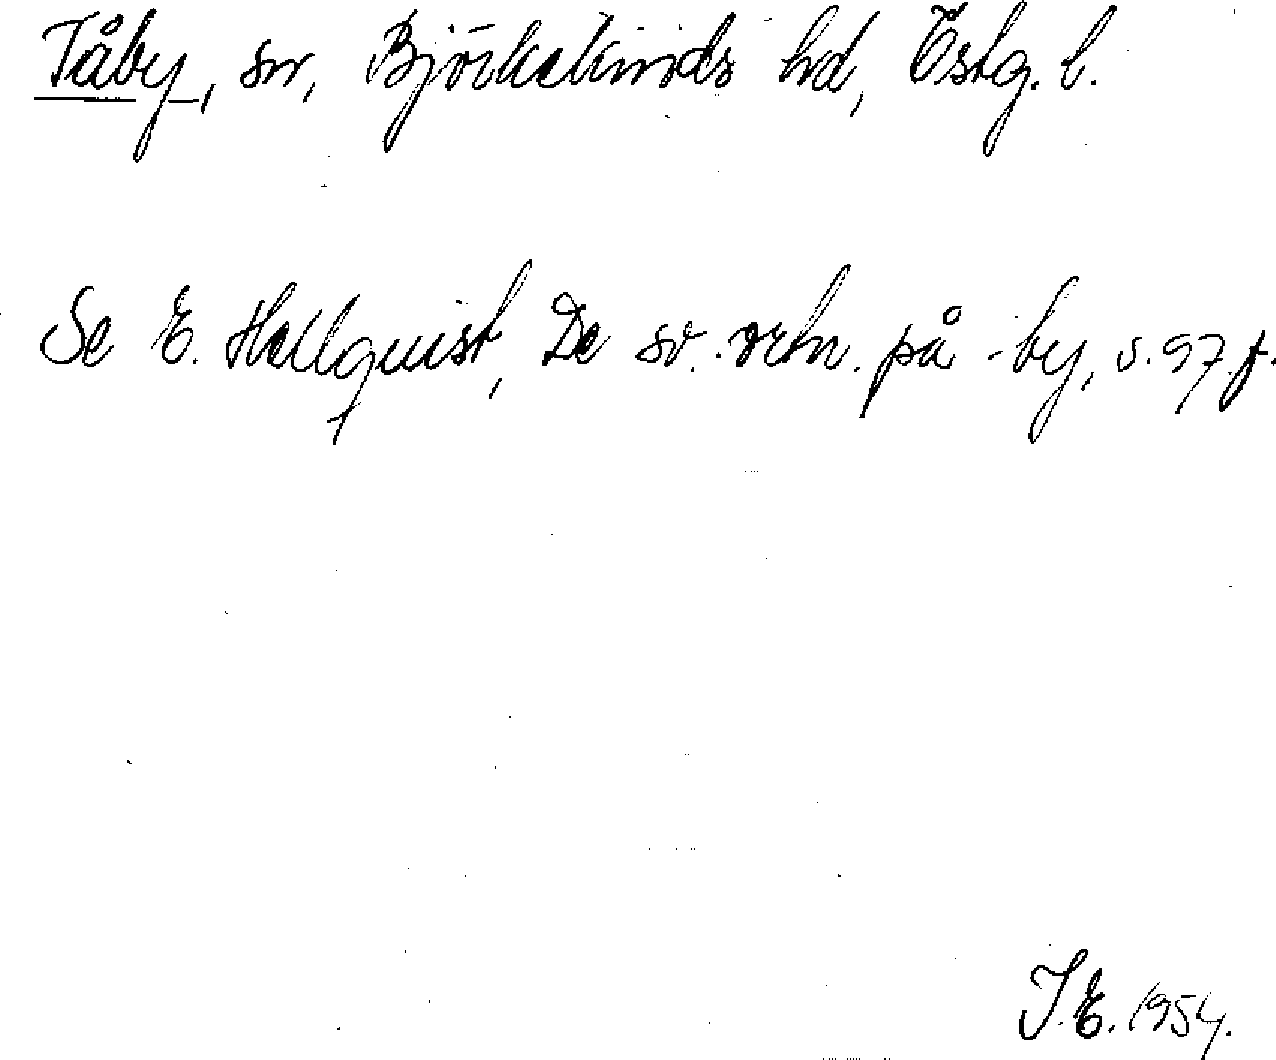 Tåby, sn, Björkekinds hd, Östg. l.
Se E. Hellquist, De sv. ortn. på -by, s. 97 f.
I. E. 1954.